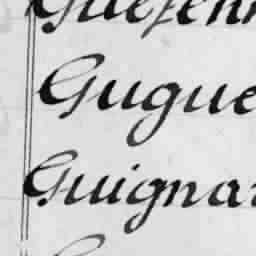 Gugue
Guignar